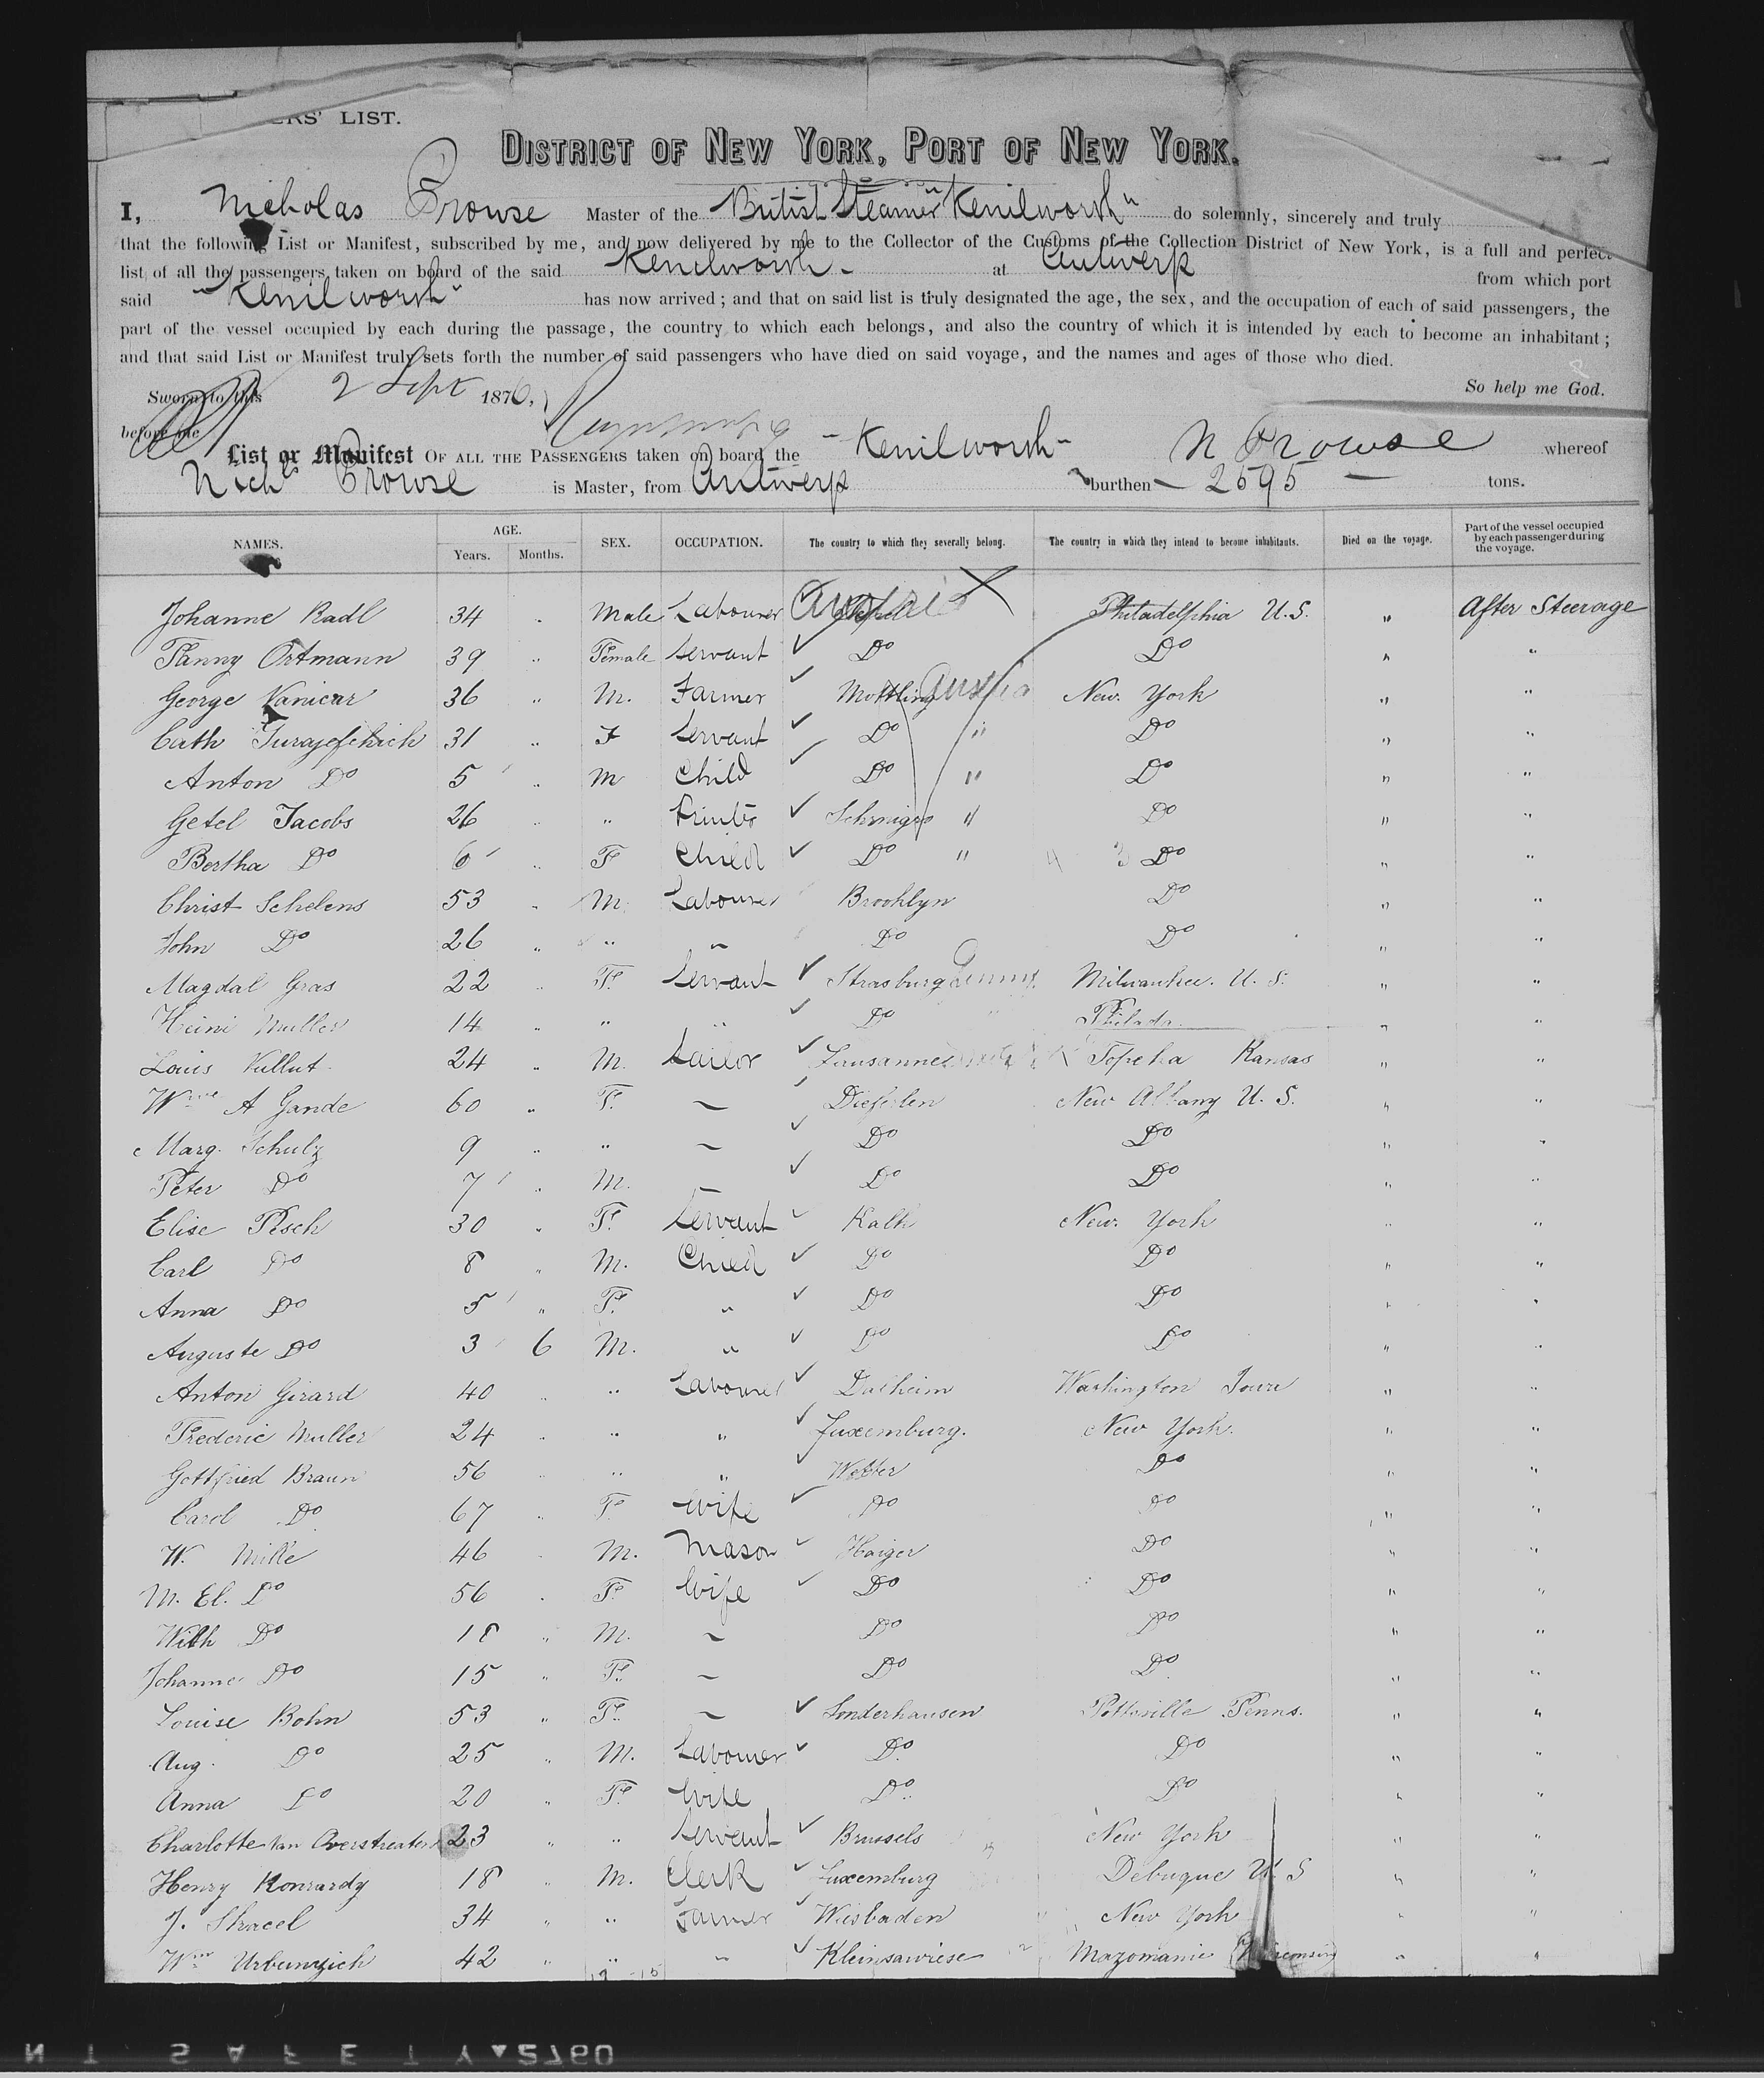 ERS' LIST.
DISTRICT OF NEW YORK, PORT OF NEW YORK.
I, Nicholas Prowse Master of the British Steamer "Kenilworth" do solemnly, sincerely and truly
that the following List or Manifest, subscribed by me, and now delivered by me to the Collector of the Customs of the Collection District of New York, is a full and perfect
list of all the passengers taken on board of the said Kenilworth at Antwerp from which port
said "Kenilworth" has now arrived; and that on said list is truly designated the age, the sex, and the occupation of each of said passengers, the
part of the vessel occupied by each during the passage, the country to which each belongs, and also the country of which it is intended by each to become an inhabitant;
and that said List or Manifest truly sets forth the number of said passengers who have died on said voyage, and the names and ages of those who died.
So help me God.
Sworn to this 2 Sept 1876,
before me
N Prowse
List or Manifest OF ALL THE PASSENGERS taken on board the "Kenilworth" whereof
Nichs Prowse is Master, from Antwerp burthen 2595 tons.
NAMES. AGE. Years. Months. SEX. OCCUPATION. The country to which they severally belong. The country in which they intend to become inhabitants. Died on the voyage. Part of the vessel occupied by each passenger during the voyage.
Johanne Radl 34 " Male Labourer Austria Philadelphia U.S. " After Steerage
Fanny Ortmann 39 " Female Servant Do Do " "
George Vanicar 36 " M. Farmer Mottling Austria New York " "
Cath 31 " F Servant Do " Do " "
Anton Do 5 " M Child Do " Do " "
Getel Jacobs 26 " " " Do " "
Bertha Do 6 " F Child Do " Do " "
Christ Schelens 53 " M. Labourer Brooklyn Do " "
John Do 26 " " " Do Do " "
Magdal Gras 22 " F. Servant Strasburg Milwaukee. U.S. " "
Heini Muller 14 " " " Do Philada. " "
Louis Vullut 24 " M. Sailor Lausanne Topeka Kansas " "
A Gande 60 " F. ~ New Albany U.S. " "
Marg. Schulz 9 " " ~ Do Do " "
Peter Do 7 " M. Do Do " "
Elise Pesch 30 " F. Servant Kalk New York " "
Carl Do 8 " M. Child Do Do " "
Anna Do 5 " F. " Do Do " "
Auguste Do 3 6 M. " Do Do " "
Anton Girard 40 " " Labourer Dalheim Washington Iowa " "
Frederic Muller 24 " " " Luxemburg. New York. " "
Gottfried Braun 56 " " " Wetter Do " "
Carol Do 67 " F. Wife Do Do " "
W. Mille 46 " M. Mason Haiger Do " "
M. El. Do 56 " F. Wife Do Do " "
Wilh Do 18 " M. ~ Do Do " "
Johanne Do 15 " F. ~ Do Do " "
Louise Bohn 53 " F. ~ Sonderhausen Pottsville Penns. " "
Aug. Do 25 " M. Labourer Do Do " "
Anna Do 20 " F. Wife Do Do " "
Charlotte Van Overstraeten 23 " " Servant Brussels New York " "
Henry Konrardy 18 " M. Clerk Luxemburg Debuque U.S " "
J. Stracel 34 " " Farmer Wiesbaden New York " "
Wm 42 " " " Kleinsawiese Mazomanie Wisconsin " "